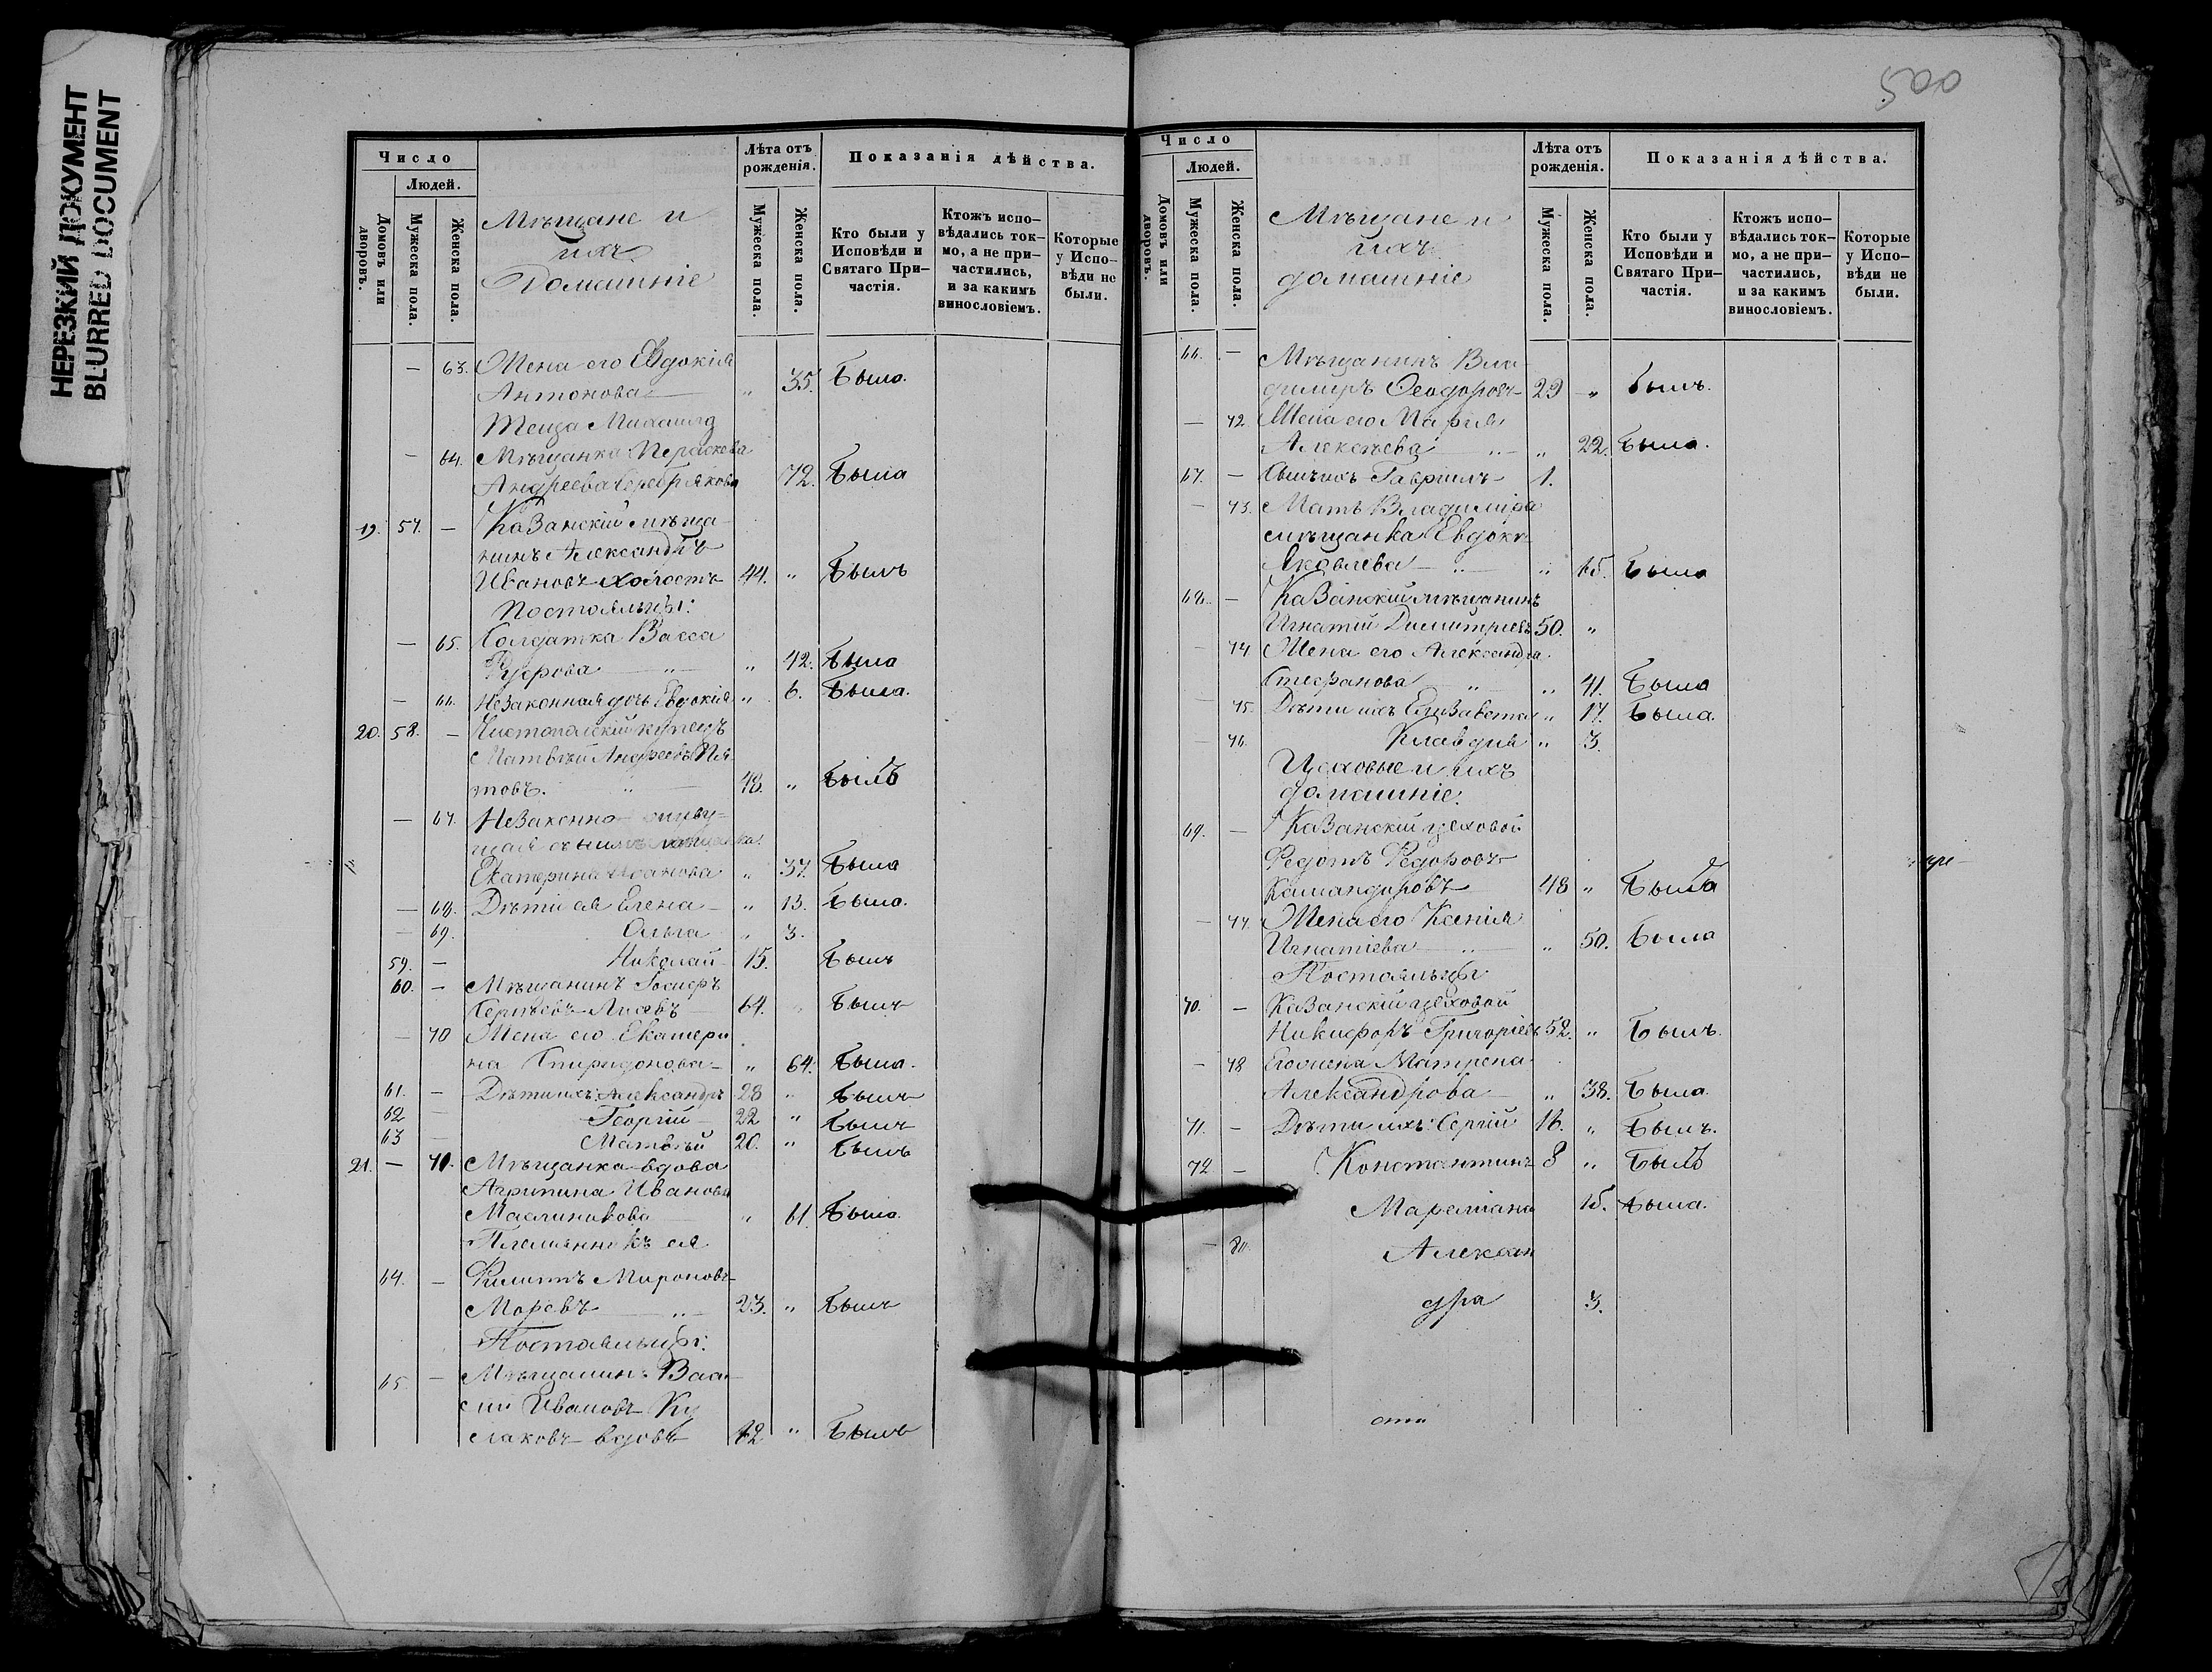 НЕРЕЗКИЙ ДОКУМЕНТ
BLURRED DOCUMENT
500
Число
Людей.
Домовъ или дворовъ.
Мужеска пола.
Женска пола.
Мѣщане и
ихъ
Домашніе
Лѣта отъ рожденія.
Мужеска пола.
Женска пола.
Показанія дѣйства.
Кто были у Исповѣди и Святаго При-частія.
Ктожъ испо-вѣдались ток-мо, а не при-частились, и за какимъ винословіемъ.
Которые у Испо-вѣди не были.
— 63. Жена его Евдокія
Антонова „ 35. Была.
Теща Михаила
— 64. Мѣщанка Пераскева
Андреева Серебрякова 72. Была
19. 57. — Казанскій мѣща-
нинъ Александръ
Ивановъ холостъ 44. „ Былъ
Постояльцы:
— 65. Солдатка Васса
„ 42. Была
— 66. Незаконная дочь Евдокія „ 6. Была.
20. 58. — Чистопольскій купецъ
Матвѣй Андреевъ
товъ. 48. „ Былъ
— 67. Незаконно живу-
щая съ нимъ мѣщанка
Екатерина Иванова „ 37. Была
— 68. Дѣти ея Елена „ 13. Была.
— 69. Ольга „ 3.
59. — Николай 15. Былъ
60. — Мѣщанинъ Іосифъ
Сергѣевъ 64. „ Былъ
— 70 Жена его Екатери
на Спиридонова „ 64. Была.
61. — Дѣти ихъ: Александръ 28 „ Былъ
62 — Георгій 22 „ Былъ
63 — Матвѣй 20. „ Былъ
21. — 71. Мѣщанка вдова
Агрипина Иванова
Масленикова „ 61. Была.
Племянникъ ея
64. — Филиппъ Мироновъ
23. „ Былъ
Постояльцы:
65. — Мѣщанинъ Васи
лій Ивановъ Ку
лаковъ вдовъ 42 „ Былъ
Число
Людей.
Домовъ или дворовъ.
Мужеска пола.
Женска пола.
Мѣщане и
ихъ
домашніе
Лѣта отъ рожденія.
Мужеска пола.
Женска пола.
Показанія дѣйства.
Кто были у Исповѣди и Святаго При-частія.
Ктожъ испо-вѣдались ток-мо, а не при-частились, и за какимъ винословіемъ.
Которые у Испо-вѣди не были.
66. — Мѣщанинъ Вла
димиръ Ѳеодоровъ 29 „ былъ.
— 72 Жена его Марія
Алексѣева „ 22. Была.
67. — Сынъ ихъ Гавріилъ 1.
— 73. Мать Владиміра
мѣщанка Евдокі
Яковлева „ 65. Была
68. — Казанскій мѣщанинъ
Игнатій Димитріевъ 50. „
— 74 Жена его Александра
Стефанова „ 41. Была
— 75. Дѣти ихъ Елизавета „ 17. Была.
— 76. Клавдія „ 3.
Цеховые и ихъ
домашніе.
69. — Казанскій цеховой
Федотъ Федоровъ
Командировъ 48 „ Былъ
— 77. Жена его Ксенія
Игнатіева „ 50. Была
Постояльцы
70. — Казанскій цеховой
Никифоръ Григоріевъ 52. „ Былъ.
— 78 Его жена Матрена
Александрова „ 38. Была.
71. — Дѣти ихъ: Сергій 16. „ Былъ.
72 — Константинъ 8 „ Былъ
Мареміана 15. Была.
— 80. Алексан
дра 3.